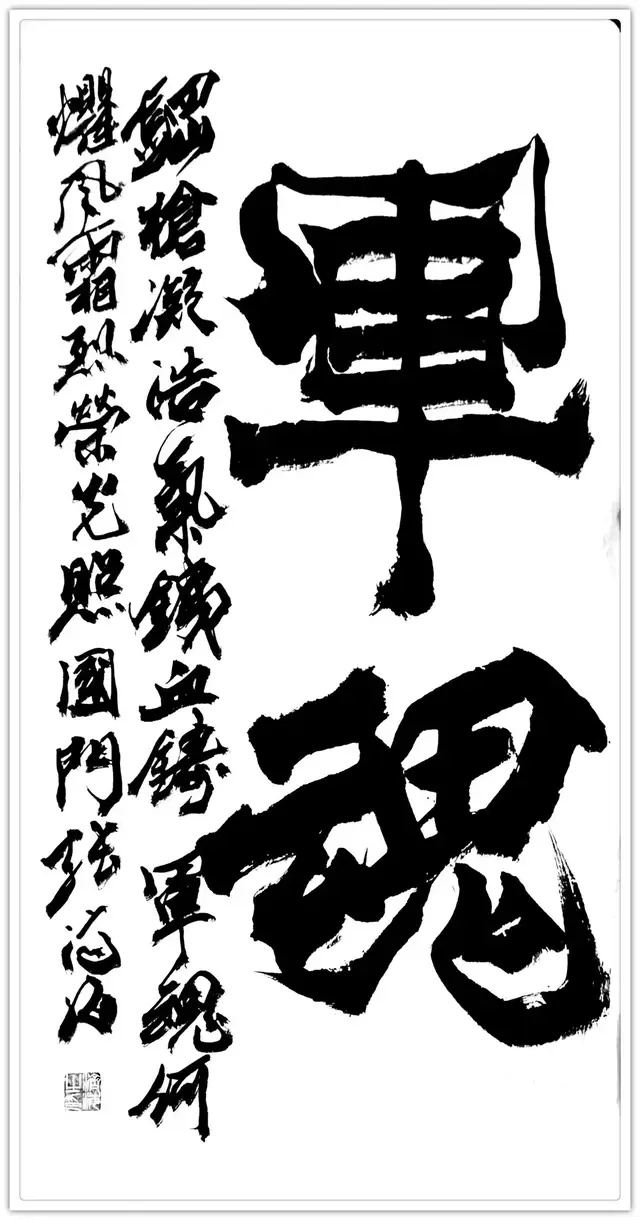 軍魂
鋼槍凝浩氣鐵血鑄軍魂何
懼風霜烈榮光照國門張